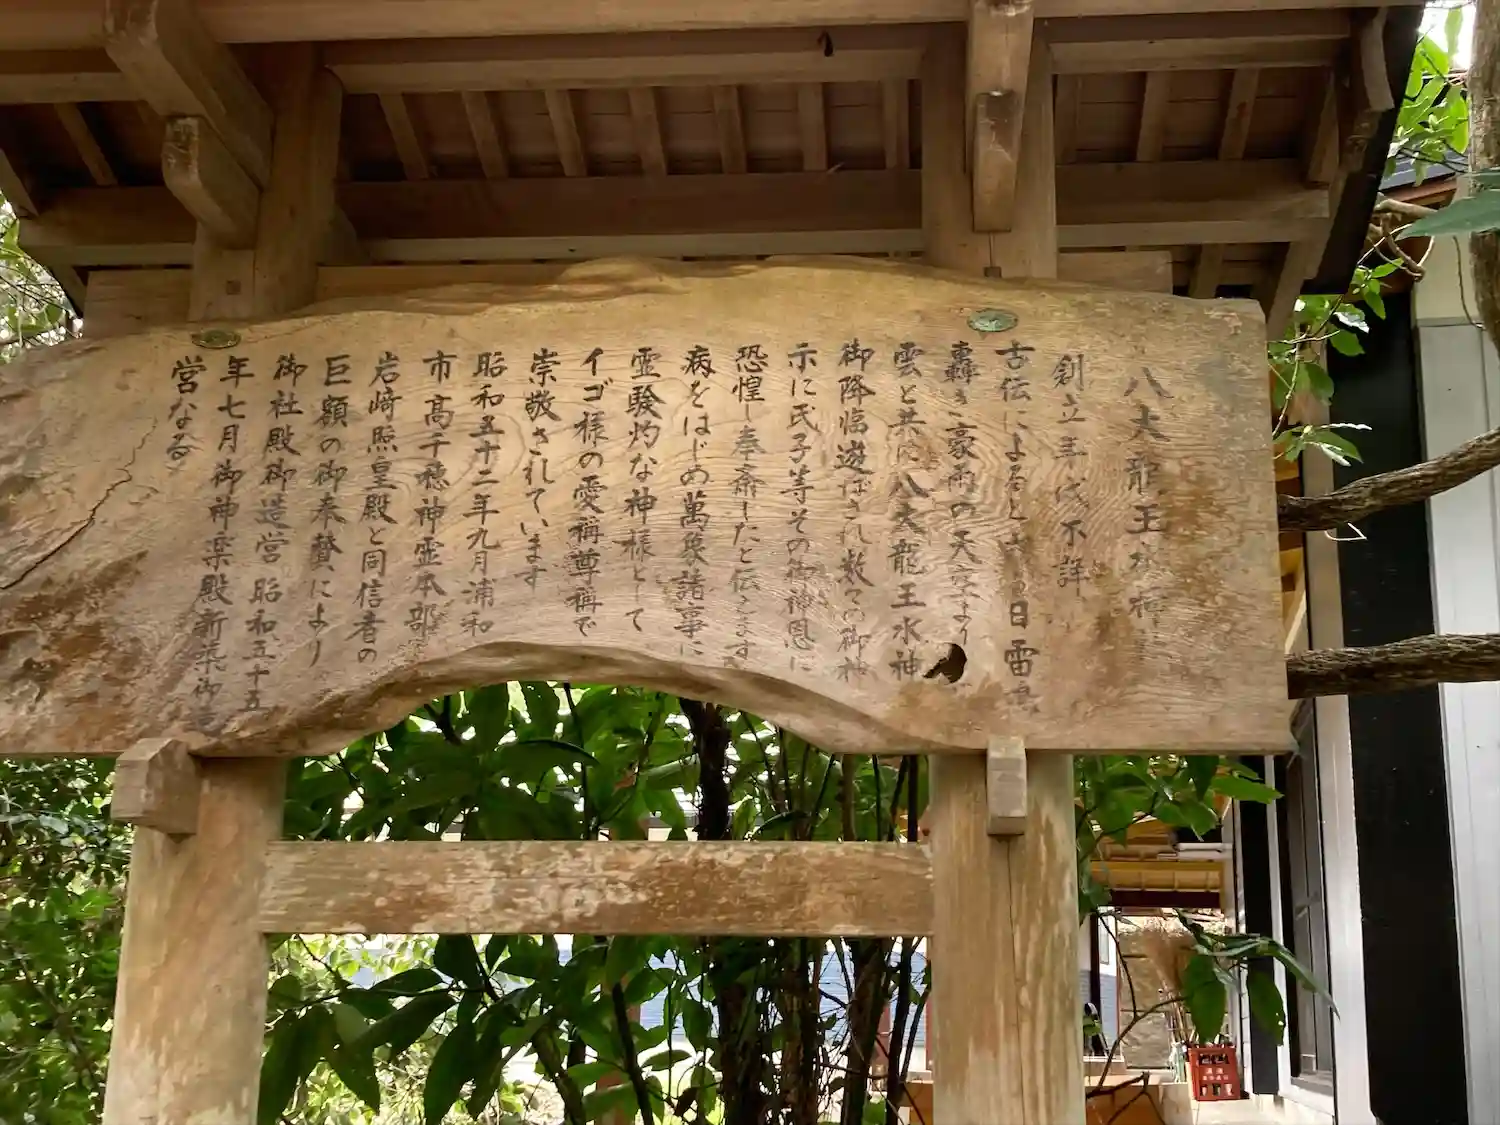 八大龍王水神
創立年代不詳
古伝によると六日雷鳴
轟き豪雨の天空より
雲と共に八大龍王水神
御降臨遊ばされ数々の御神
示に氏子等その御神恩に
恐惶し奉斎したと伝えます
病をはじめ萬象諸事に
霊験灼な神様として
イゴ様の愛称尊称で
崇敬されています
昭和五十二年九月浦和
市高千穂神霊本部
岩崎照皇殿と同信者の
巨額の御奉賛により
御社殿御造営昭和五十五
年七月御神楽殿新築御造
営なる